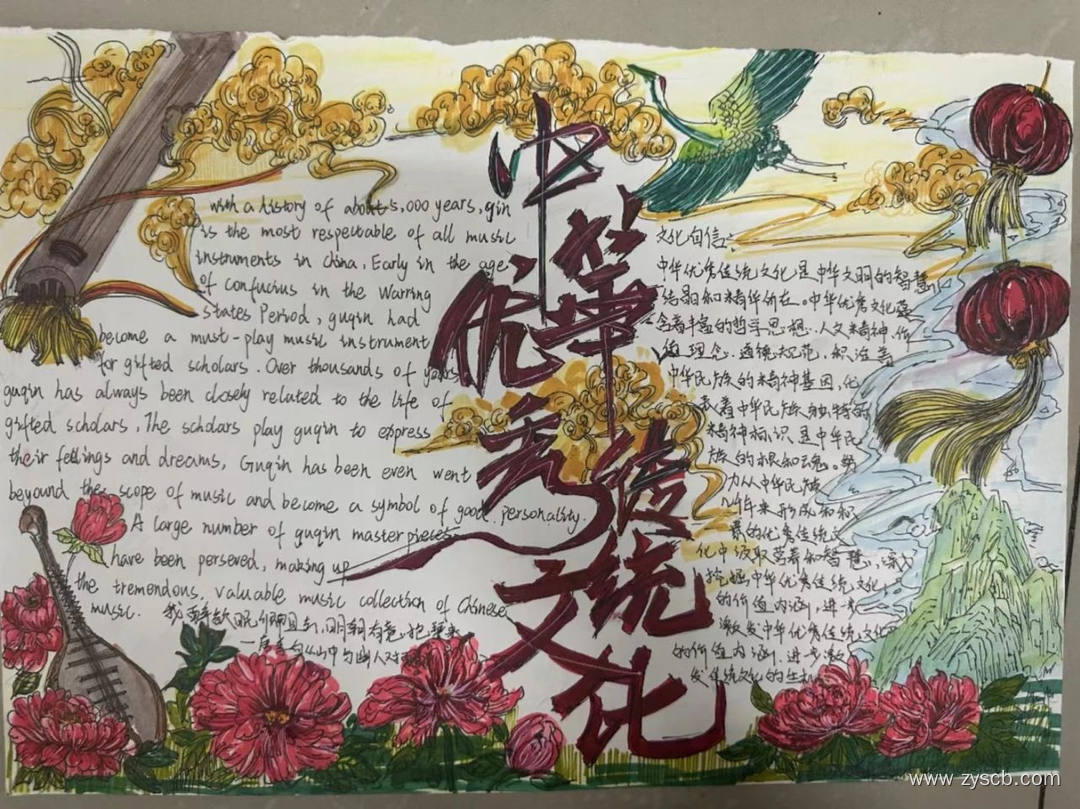 中华优秀传统文化
with a history of about 5,000 years, qin
is the most respectable of all music
instruments in China. Early in the age
of confucius in the Warring
states Period, guqin had
become a must-play music instrument
for gifted scholars. Over thousands of years
guqin has always been closely related to the life of
gifted scholars. The scholars play guqin to express
their feelings and dreams, Guqin has been even went
beyound the scope of music and become a symbol of good personality.
A large number of guqin masterpieces
have been persered, making up
the tremendous, valuable music collection of Chinese
music. 我醉欲眠卿且去,明朝有意抱琴来
文化自信:
中华优秀传统文化是中华文明的智慧
结晶和精华所在。中华优秀文化蕴
含着丰富的哲学思想、人文精神、价
值理念、道德规范,积淀着
中华民族的精神基因,代
表着中华民族独特的
精神标识是中华民
族的根和魂。努
力从中华民族
几千年来形成和积
累的优秀传统文
化中汲取营养和智慧,深入
挖掘中华优秀传统文化
的价值内涵,进一步
激发中华优秀传统文化
的价值内涵,进一步激
发传统文化的生机
www.zyscb.com